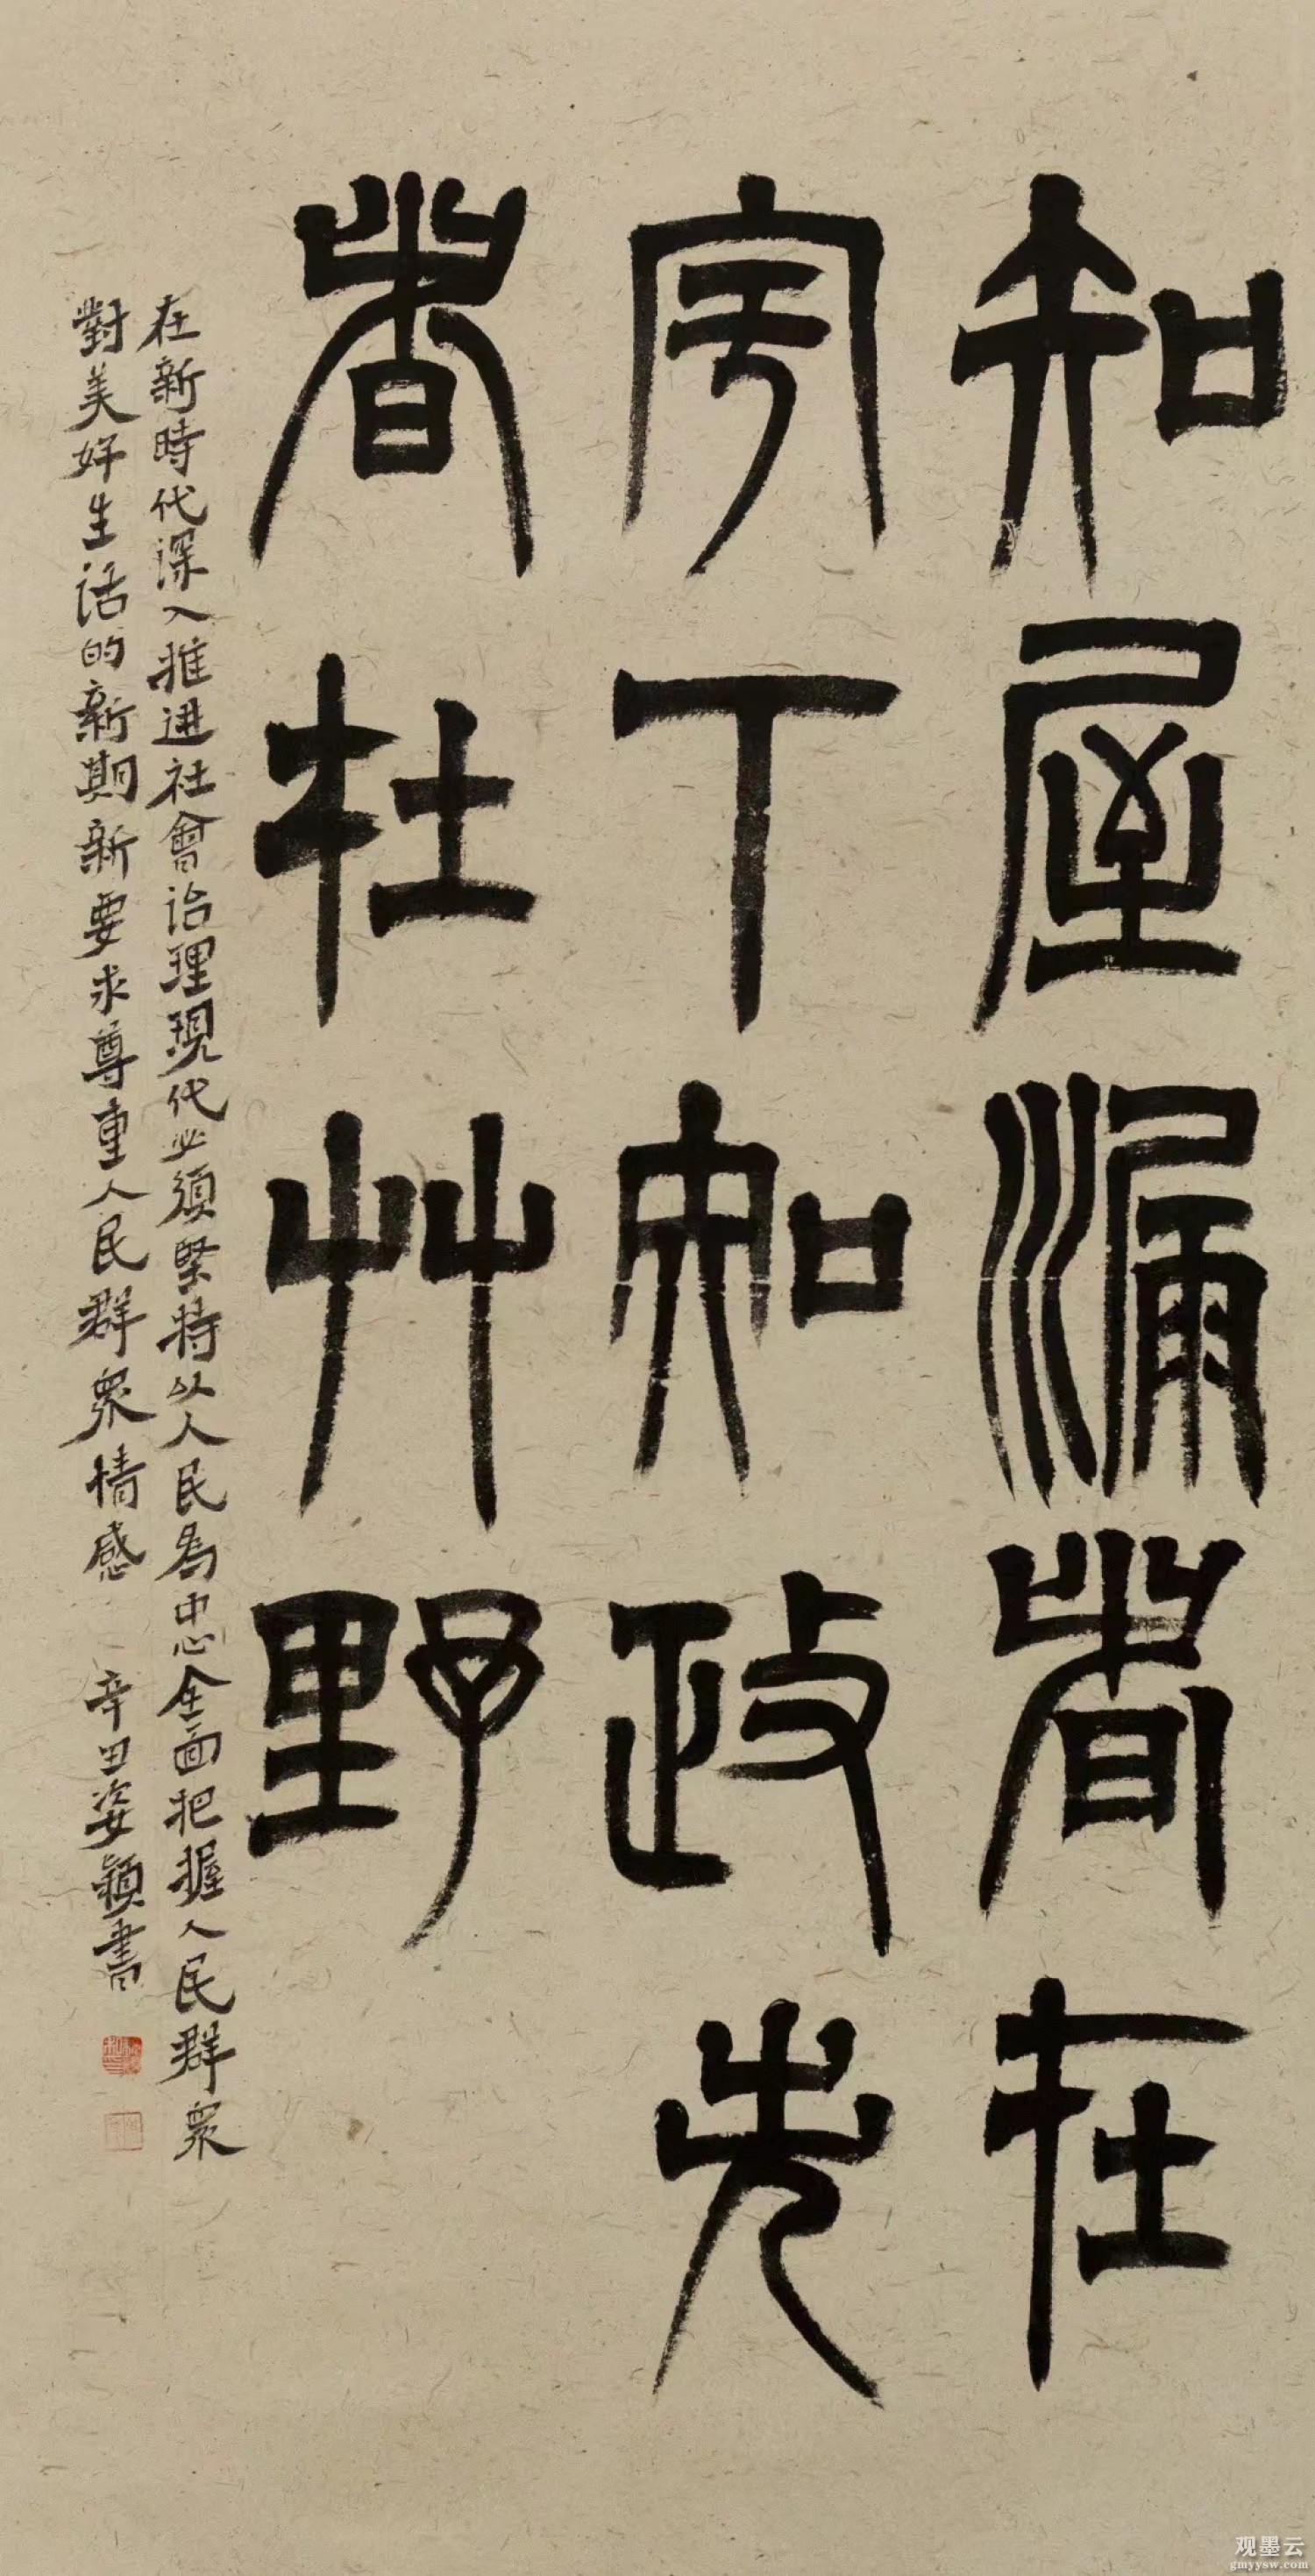 知屋漏者在
宇下知政失
者在艸野
在新時代深入推進社會治理現代必須堅持以人民為中心全面把握人民群衆
對美好生活的新期新要求尊重人民群衆情感 辛丑姿穎書
观墨云
gmyysw.com